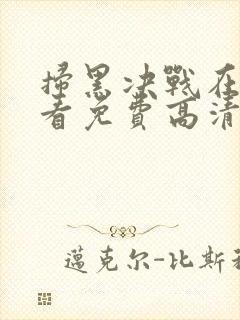 掃黑決戰在
看免費高清
邁克尔-比斯